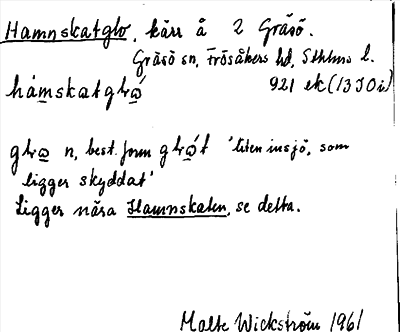 Hamnskatglo, kärr å 2 Gräsö.
Gräsö sn, Frösåkers hd, Sthlms l.
hámskatglω´ 921 ek (13 I 0 i)
glω n, best. form glω´t 'liten insjö, som
ligger skyddat'
Ligger nära Hamnskaten, se detta.
Malte Wickström 1961